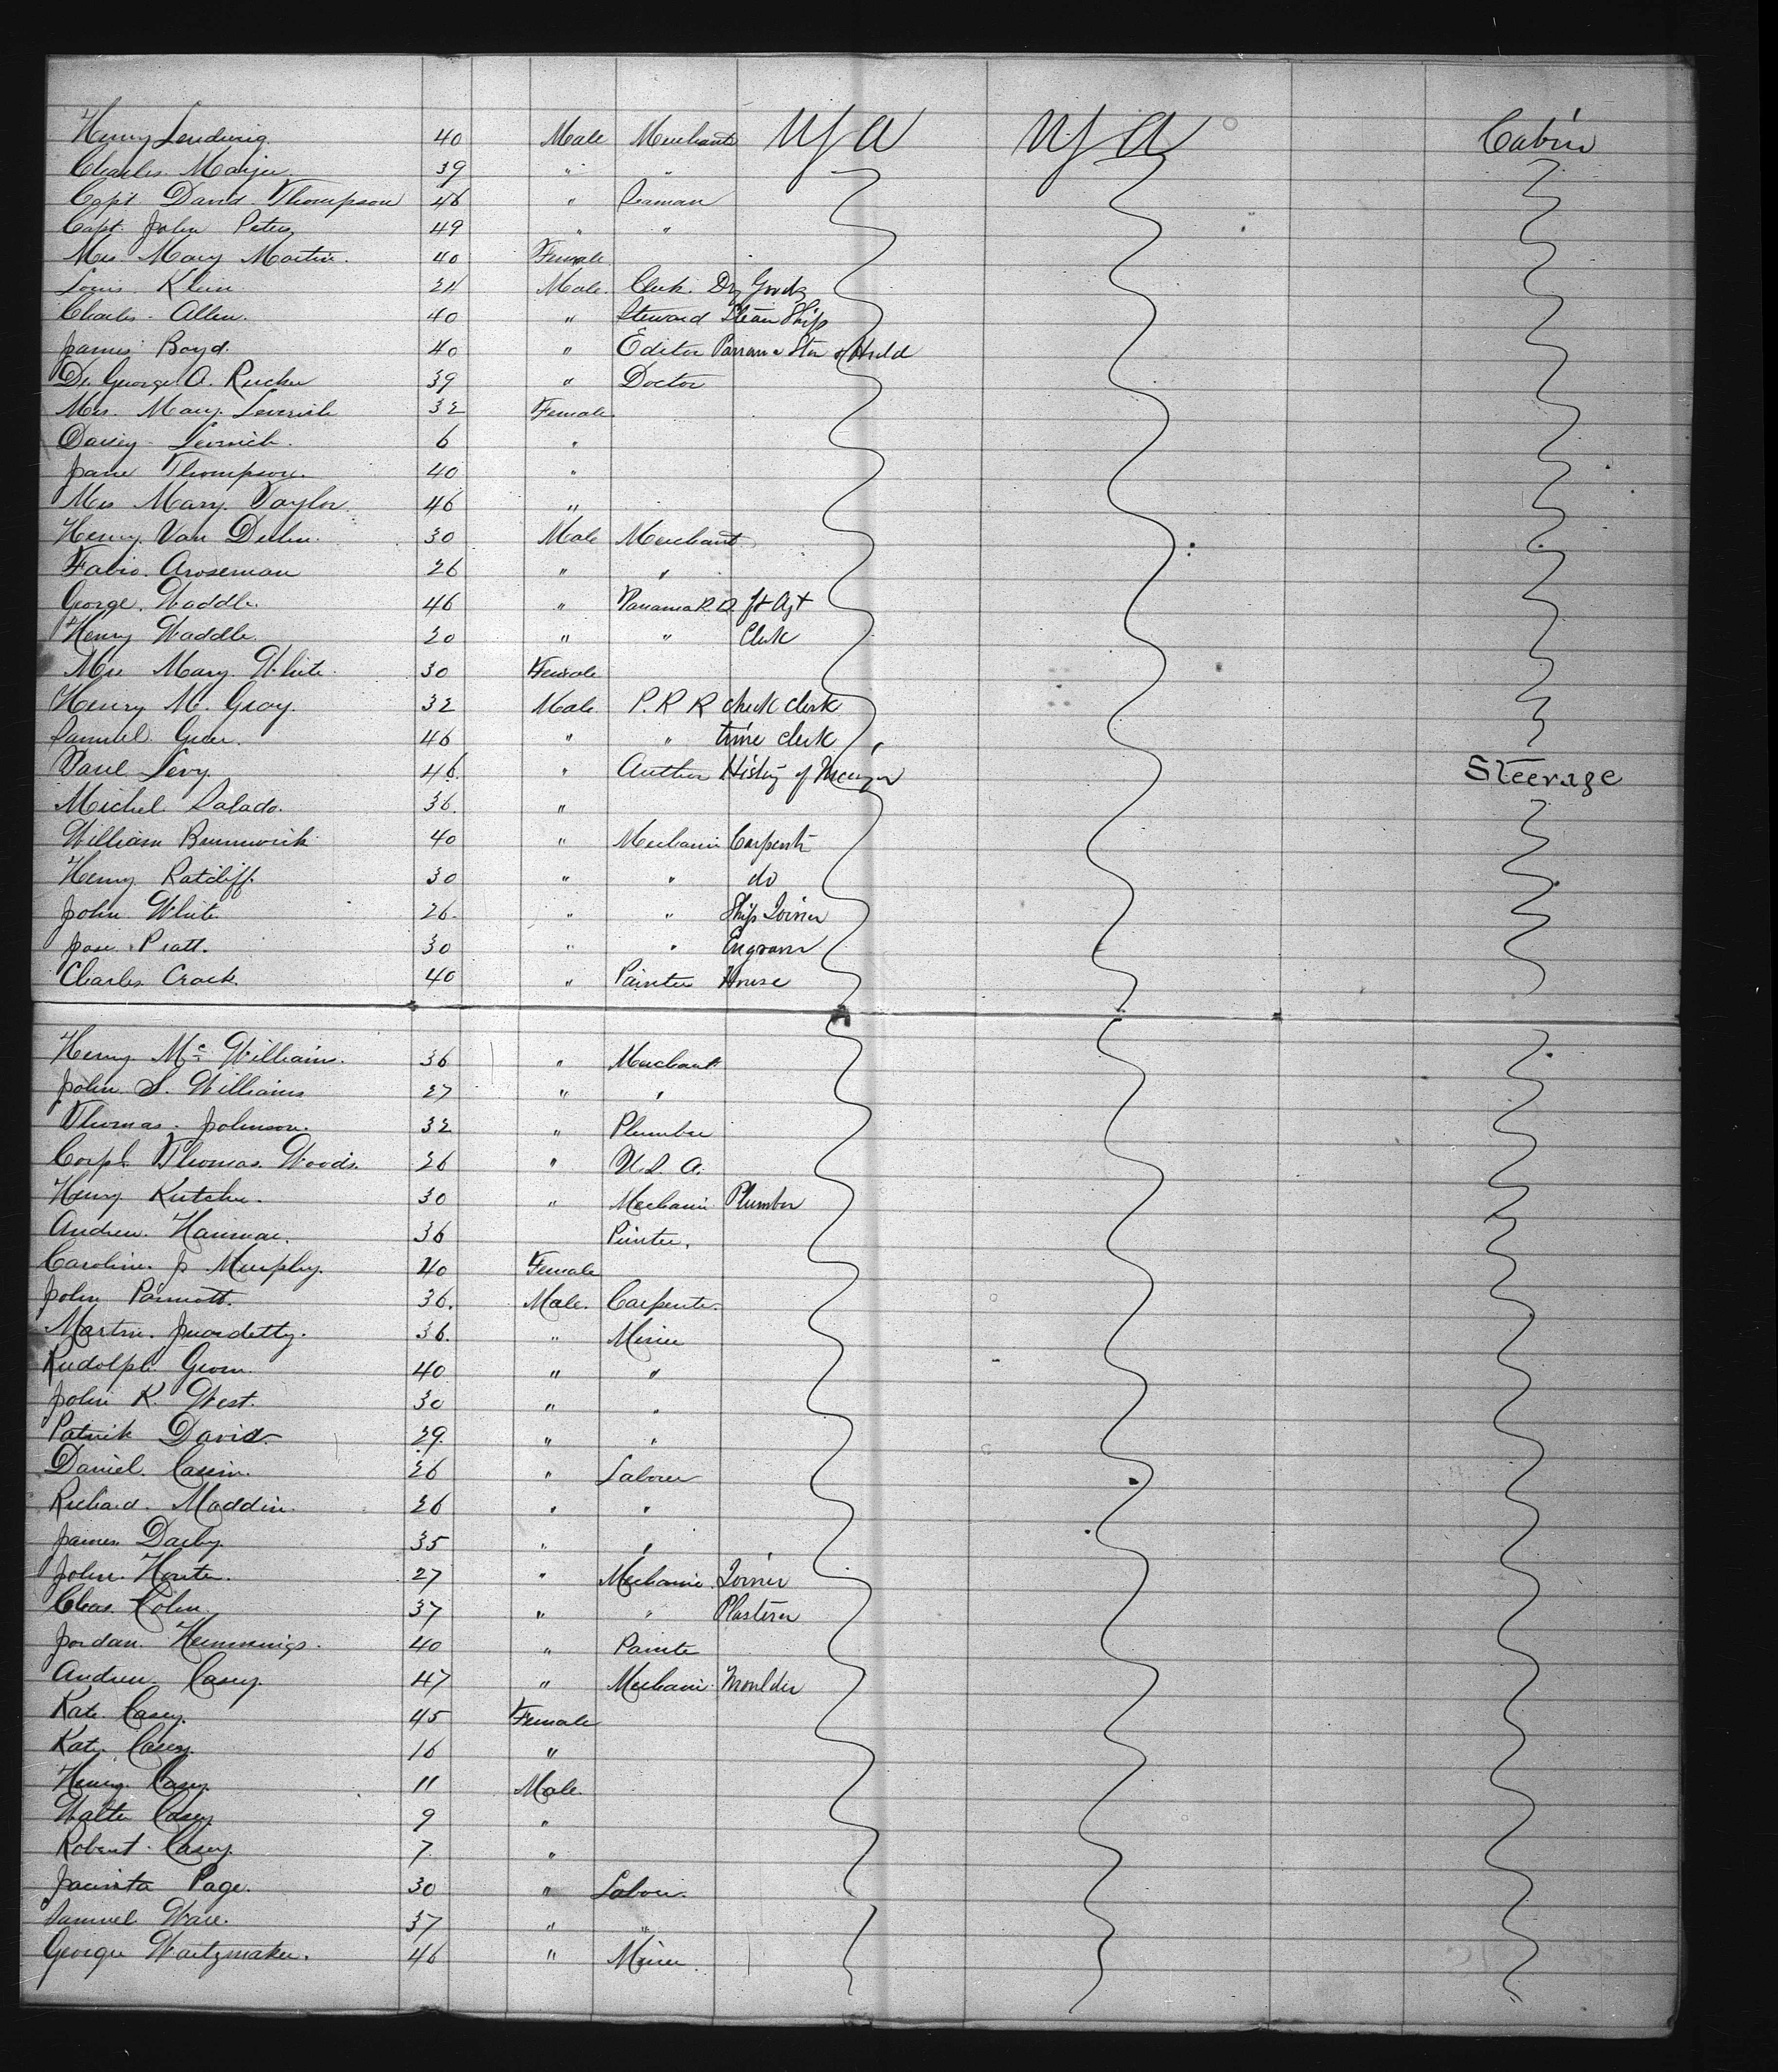 Henry Lendwig 40 Male Merchant U S A U S A Cabin
Charles Maijer 39 " "
Capt David Thompson 46 " Seaman
Capt John Peters 49 " "
Mrs Mary Martin. 40 Female
Louis Klein 24 Male Clerk Dry Goods
Charles Allen. 40 " Steward Steam Ship
James Boyd. 40 " Editor Panama Star & Herald
Dr. George A. Rucker 39 " Doctor
Mrs. Mary Leverich 32 Female
Daisey Leverich. 6 "
Jane Thompson. 40 "
Mrs Mary Taylor 46 "
Henry Van 30 Male Merchant
Fabio Aroseman 26 " "
George Waddle. 46 " Panama R. R ft Agt
Henry Waddle. 20 " " Clerk
Mrs Mary White. 30 Female
Henry M. Gray. 32 Male P. R R check clerk
Samuel Greer. 46 " " time clerk
Paul Levy. 46. " Author History of
Michel Salado. 36. " Steerage
William Brunswick 40 " Mechanic Carpenter
Henry Ratcliff. 30 " " do
John White 26. " " Ship Joiner
Jose Pratt. 30 " " Engraver
Charles Crack. 40 " Painter House
Henry Mc Williams. 36 " Merchant
John S. Williams 27 " "
Thomas Johnson. 32 " Plumber
Corpl. Thomas Woods. 26 " U. S. A.
Henry Kutcher. 30 " Mechanic Plumber
Andrew 36 Printer.
Caroline J Murphy. 40 Female
John Parrott. 36. Male. Carpenter.
Martin 36. " Miner
Rudolph 40 " "
John K. West. 30 " "
Patrick David 29. " "
Daniel Cassin. 26 " Laborer
Richard Maddin. 26 " "
James Darby. 35 " "
John Hunter. 27 " Mechanic Joiner
Chas. Cohn 37 " " Plasterer
Jordan Hemmings. 40 " Painter
Andrew Casey. 47 " Mechanic Moulder
Kate Casey. 45 Female
Kate Casey. 16 "
Henry Casey. 11 Male
Walter Casey. 9 "
Robert Casey. 7 "
Jacinta Page. 30 " Laborer.
Samuel Ware. 37 " "
George Waitzmaker. 46 " Miner.